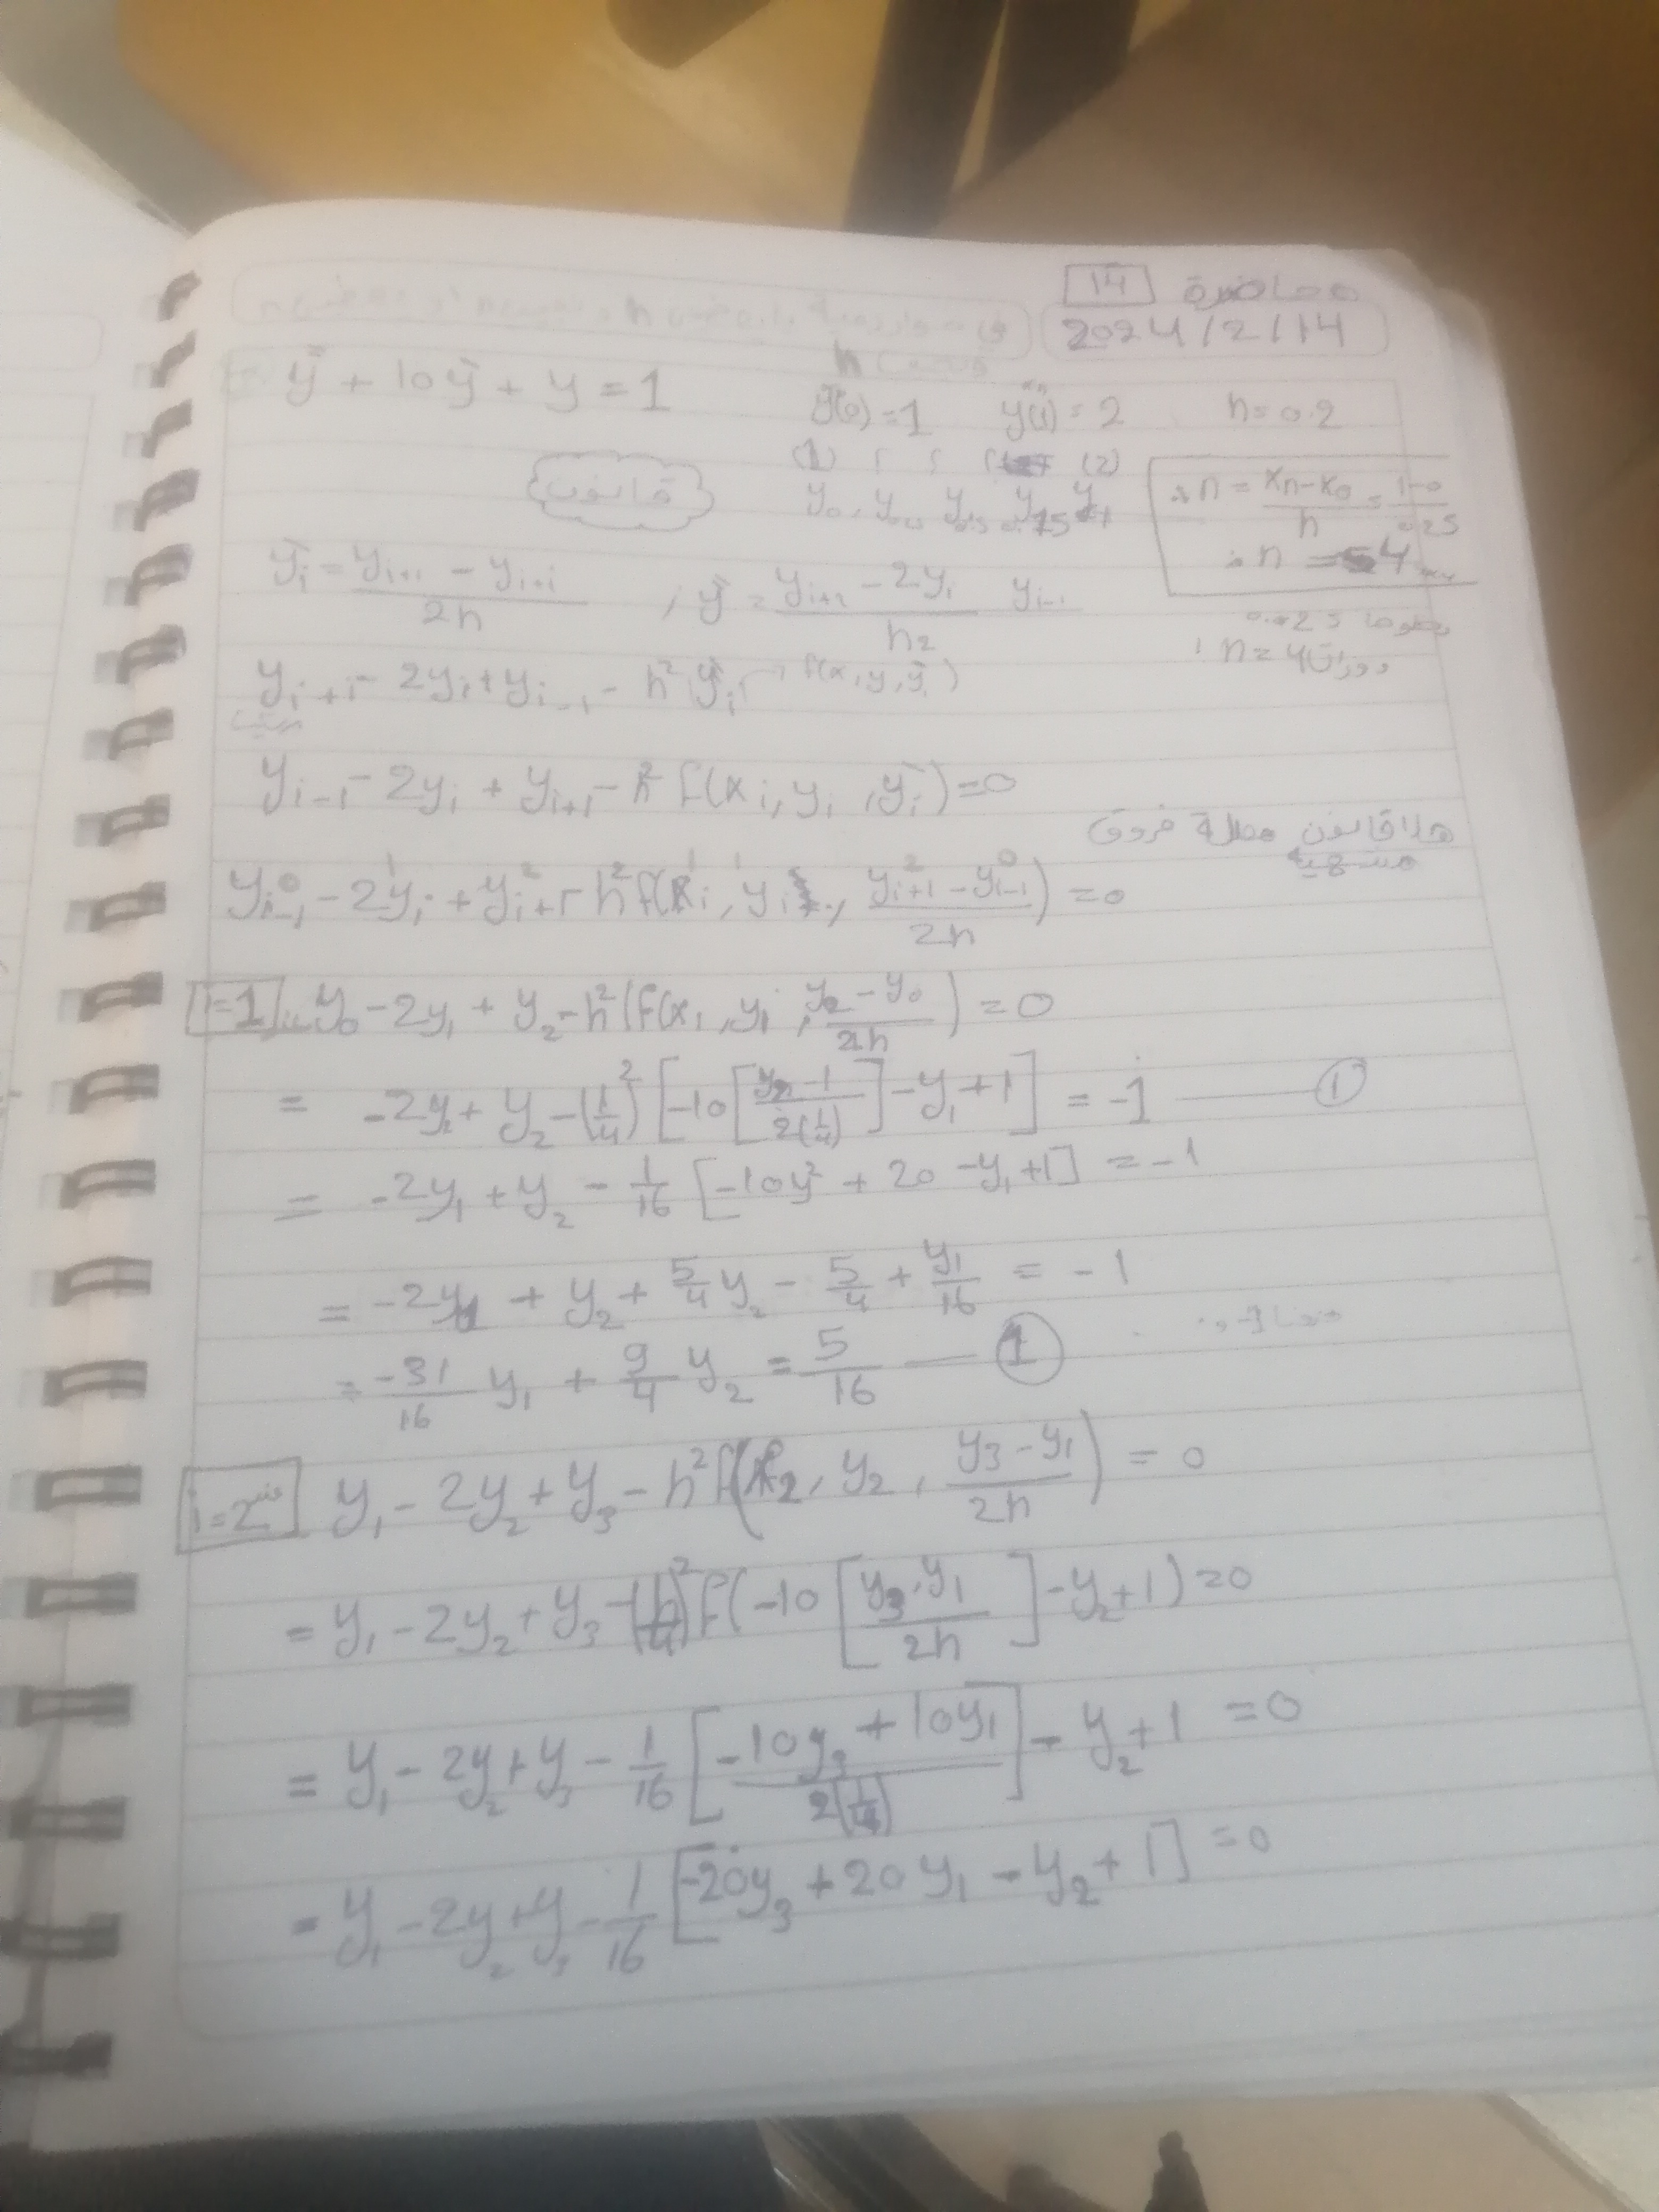 محاضرة 14
2024/2/14
ÿ + 10ȳ + y = 1
y(0)=1 y(1)=2 h=0.2
(1) (2)
قانون
∴ n = (xn-x0)/h = (1-0)/0.25
∴ n = 4
ȳi = (yi+1 - yi+i)/2h , ȳ = (yi+2 - 2yi yi-1)/h2
n=4
yi+i - 2yi + yi-1 - h² ȳi → f(x, y, ȳ)
yi-1 - 2yi + yi+1 - h² f(xi, yi, ȳi) = 0
هذا قانون معادلة فروق
منتهية
yi-1 - 2yi + yi+1 - h² f(xi, yi, (yi+1 - yi-1)/2h) = 0
i=1 y0 - 2y1 + y2 - h²(f(x1, y1, (y2 - y0)/2h) = 0
= -2y1 + y2 - (1/4)² [-10[(y2 - 1)/2(1/4)] - y1 + 1] = -1 ——— ①
= -2y1 + y2 - 1/16 [-10y² + 20 - y1 + 1] = -1
= -2y1 + y2 + 5/4 y2 - 5/4 + y1/16 = -1
= -31/16 y1 + 9/4 y2 = 5/16 —— ①
i=2 y1 - 2y2 + y3 - h² f(x2, y2, (y3 - y1)/2h) = 0
= y1 - 2y2 + y3 - (1/4)² f(-10 [(y3 - y1)/2h] - y2 + 1) = 0
= y1 - 2y2 + y3 - 1/16 [(-10y3 + 10y1)/2(1/4)] - y2 + 1 = 0
= y1 - 2y2 + y3 - 1/16 [-20y3 + 20y1 - y2 + 1] = 0